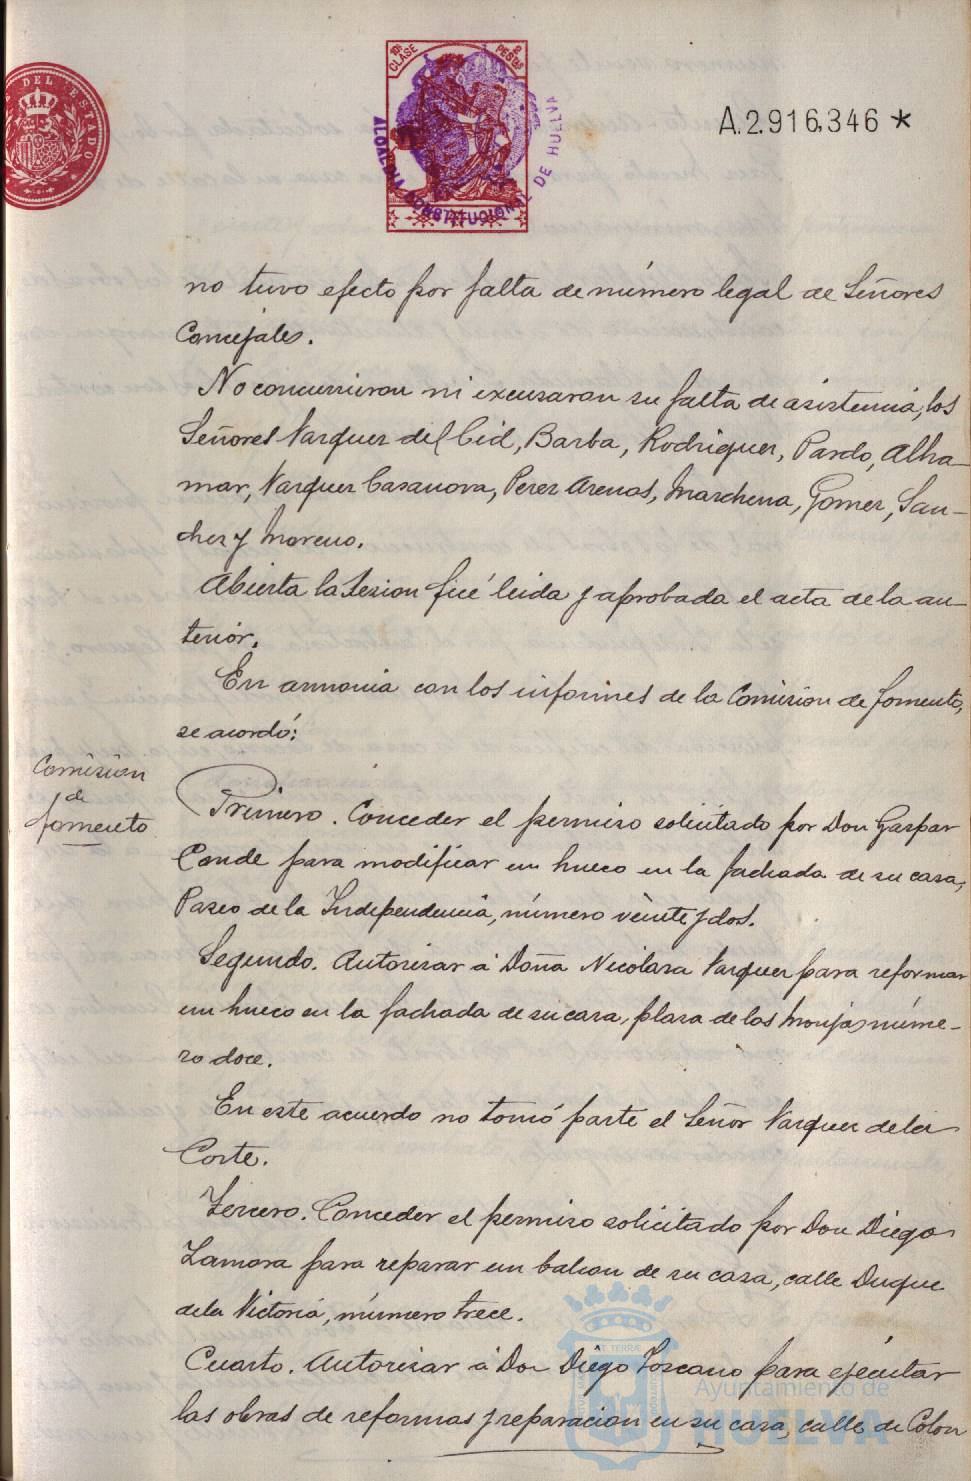 DEL ESTADO
10ª CLASE
2 PESETAS
ALCALDIA CONSTITUCIONAL DE HUELVA
A.2.916,346 *
no tuvo efecto por falta de número legal de Señores
Concejales.
No concurrieron ni excusaron su falta de asistencia, los
Señores Vazquez del Cid, Barba, Rodriguez, Pardo, Alha-
mar, Vazquez Casanova, Perez Arenas, Marchena, Gomez, San-
chez y Moreno.
Abierta la Sesion fué leida y aprobada el acta de la an-
terior.
En armonia con los informes de la Comision de fomento,
se acordó:
Comision
de
fomento
Primero. Conceder el permiso solicitado por Don Gaspar
Conde para modificar un hueco en la fachada de su casa,
Paseo de la Independencia, número veinte y dos.
Segundo. Autorizar á Doña Nicolasa Vazquez para reformar
un hueco en la fachada de su casa, plaza de las Monjas, núme-
ro doce.
En este acuerdo no tomó parte el Señor Vazquez de la
Corte.
Tercero. Conceder el permiso solicitado por Don Diego
Zamora para reparar un balcon de su casa, calle Duque
de la Victoria, número trece.
Cuarto. Autorizar á Don Diego Toscano para ejecutar
las obras de reformas y reparacion en su casa, calle de Colon
Ayuntamiento de
HUELVA